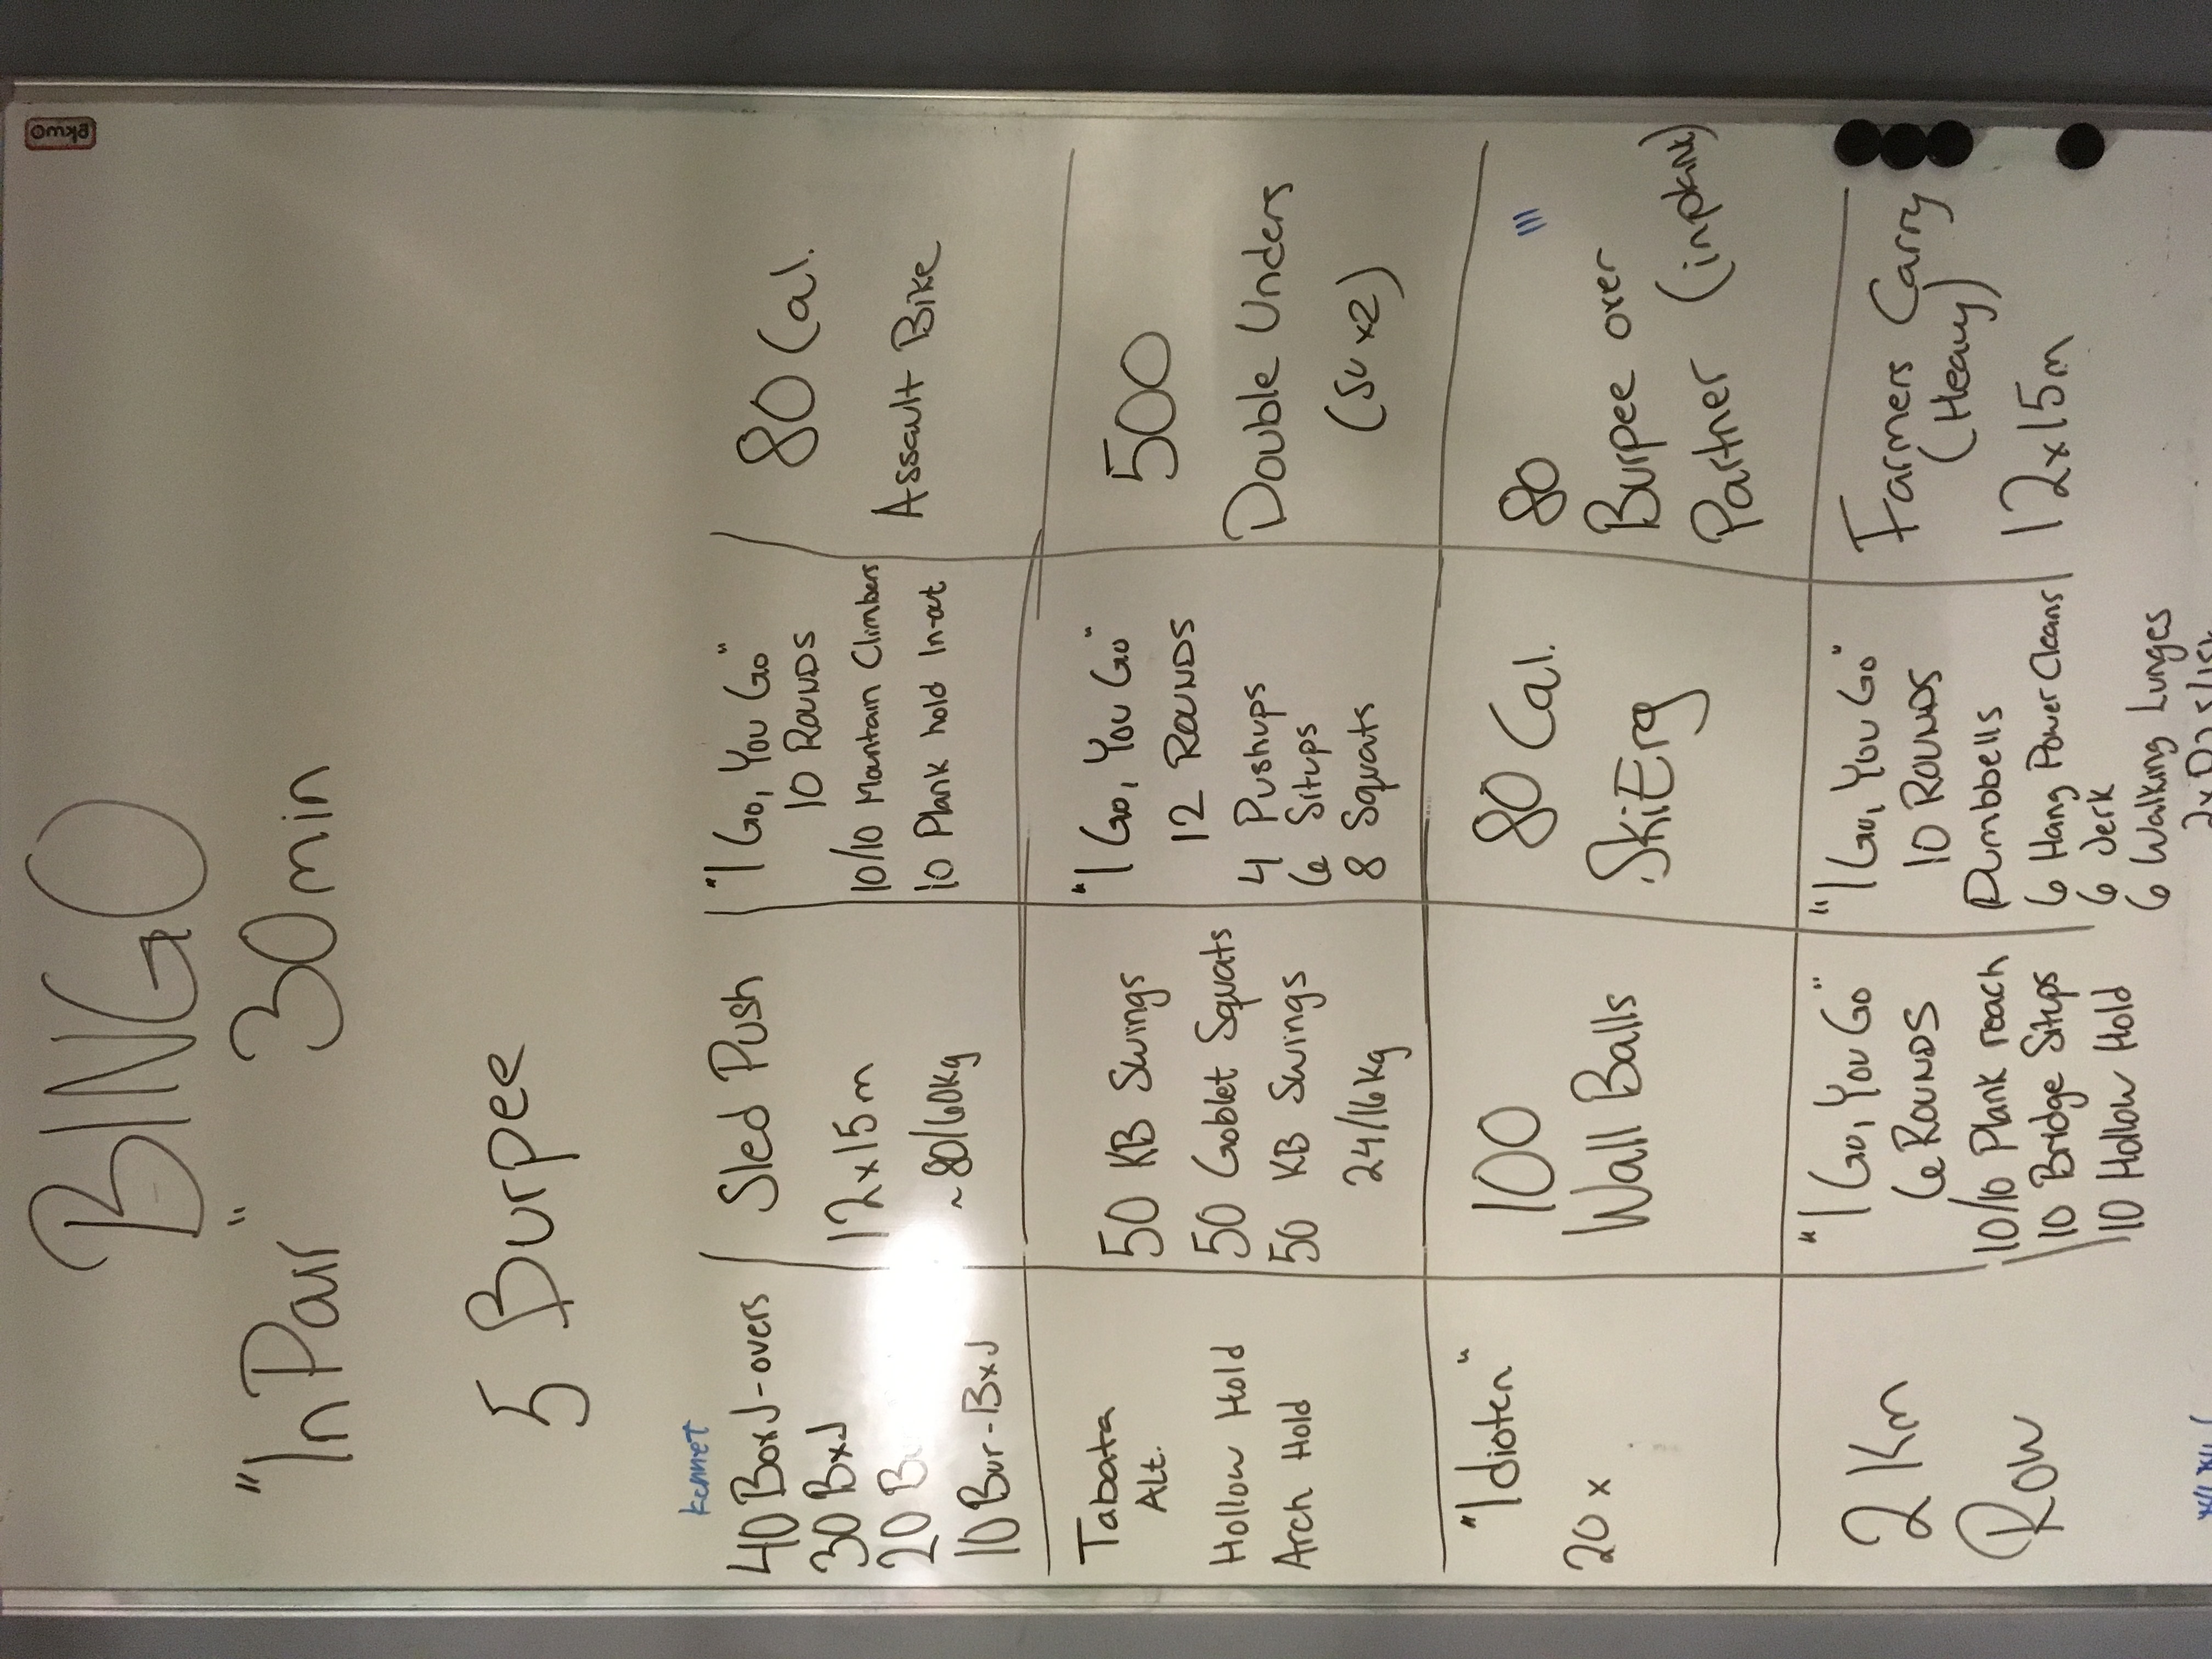 BINGO
"In Parr" 30min
5 Burpee
kennet
40 BoxJ-overs
30 BxJ
20 B
10 Bur-BxJ
Sled Push
12x15m
~80/60kg
"I Go, You Go"
10 ROUNDS
10/10 Mountain Climbers
10 Plank hold In-out
80 Cal.
Assault Bike
Tabata
Alt.
Hollow Hold
Arch Hold
50 KB Swings
50 Goblet Squats
50 KB Swings
24/16kg
"I Go, You Go"
12 ROUNDS
4 Pushups
6 Situps
8 Squats
500
Double Unders
(SU x2)
"Idioten"
20 x
100
Wall Balls
80 Cal.
SkiErg
80
Burpee over
Partner (inplank)
2 Km
Row
"I Go, You Go"
6 ROUNDS
10/10 Plank reach
10 Bridge Situps
10 Hollow Hold
"I Go, You Go"
10 ROUNDS
Dumbbells
6 Hang Power Cleans
6 Jerk
6 Walking Lunges
Farmers Carry
(Heavy)
12x15m